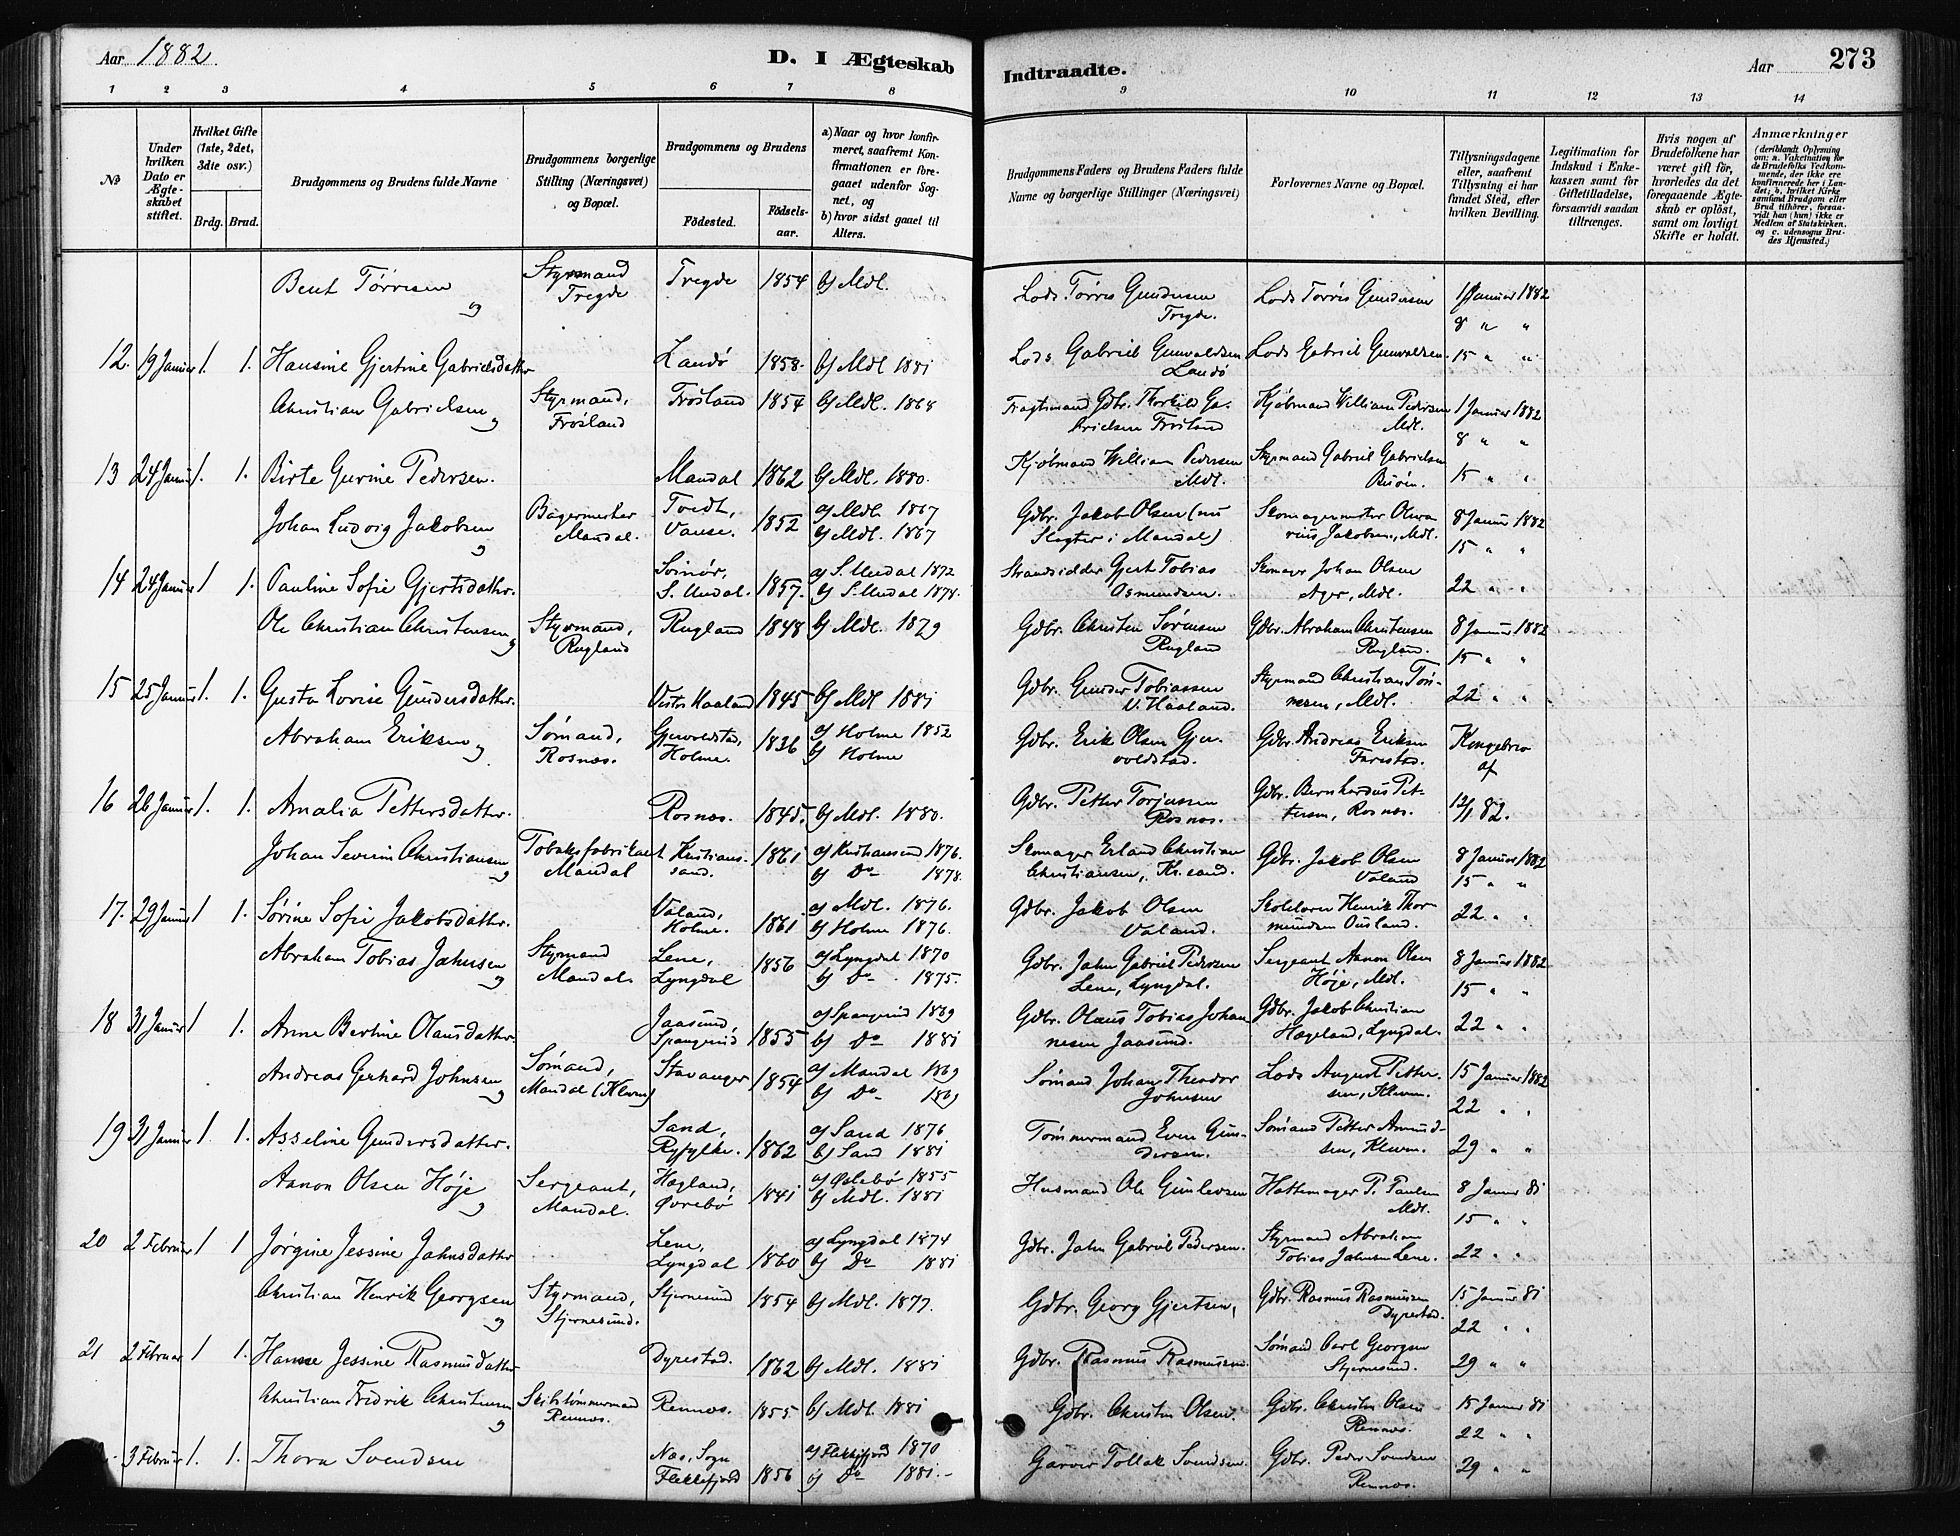 Aar 1882.
D. I Ægteskab
Indtraadte.
Aar
273
1 2 3 4 5 6 7 8 9 10 11 12 13 14
No
Under hvilken Dato er Ægteskabet stiftet.
Hvilket Gifte (1ste, 2det, 3die osv.)
Brdg. Brud.
Brudgommens og Brudens fulde Navne
Brudgommens borgerlige Stilling (Næringsvei) og Bopæl.
Brudgommens og Brudens
Fødested.
Fødselsaar.
a) Naar og hvor konfirmeret, saafremt Konfirmationen er foregaaet udenfor Sognet, og
b) hvor sidst gaaet til Alters.
Brudgommens Faders og Brudens Faders fulde Navne og borgerlige Stillinger (Næringsvei)
Forlovernes Navne og Bopæl.
Tillysningsdagene eller, saafremt Tillysning ei har fundet Sted, efter hvilken Bevilling.
Legitimation for Indskud i Enkekassen samt for Giftetilladelse, forsaavidt saadan tiltrænges.
Hvis nogen af Brudefolkene har været gift før, hvorledes da det foregaaende Ægteskab er opløst, samt om lovligt Skifte er holdt.
Anmærkninger
(deriblandt Oplysning om: a. Vakcination for de Brudefolks Vedkommende, der ikke ere konfirmerede her i Landet; b. hvilket Kirkesamfund Brudgom eller Brud tilhører, forsaavidt han (hun) ikke er Medlem af Statskirken, og c. udensogns Brudes Hjemsted.)
Bent Tørresen og Styrmand Tregde Tregde 1854 b) Mdl. Lods Tørres Gundersen Tregde. Lods Tørres Gundersen 1 Januar 1882
8 " "
12. 19 Januar 1. 1. Hansine Gjertine Gabrielsdatter Landø 1858. b) Mdl 1881 Lods Gabriel Gunvaldsen Landø Lods Gabriel Gunvaldsen. 15 " "
Christian Gabrielsen og Styrmand, Frøsland Frøsland 1854 b) Mdl. 1868 Fragtmand Gdbr. Thorkild Gabrielsen Frøsland Kjøbmand William Pedersen Mdl. 1 Januar 1882
8 " "
13 24 Januar 1. 1. Birte Gurine Pedersen. Mandal 1862 b) Mdl. 1880. Kjøbmand William Pedersen Mdl. Styrmand Gabriel Gabrielsen 15 " "
Johan Ludvig Jakobsen og Bagermester Mandal. Tvedt, Vanse. 1852 a) Mdl. 1867
b) Mdl. 1867 Gdbr. Jakob Olsen (nu Slagter i Mandal) Skomagermester Olavarius Jakobsen, Mdl. 8 Januar 1882
15 " "
14 24 Januar 1 1. Pauline Sofie Gjertsdatter. Svinør, S. Undal. 1857. a) S. Undal 1872
b) S. Undal 1878. Strandsidder Gjert Tobias Osmundsen. Skomager Johan Olsen Ager, Mdl. 22 " "
Ole Christian Christensen og Styrmand, Rugland Rugland 1848 b) Mdl. 1879 Gdbr. Christen Sørensen Rugland Gdbr. Abraham Christensen Rugland. 8 Januar 1882
15 " "
15 25 Januar 1. 1. Gusta Lovise Gundersdatter. Vestre Haaland 1845 b) Mdl 1881 Gdbr. Gunder Tobiassen V. Haaland. Styrmand Christian Tønnesen, Mdl. 22 " "
Abraham Eriksen og Sømand, Rosnæs. Gjervoldstad, Holme. 1836 a) Holme 1852
b) Holme Gdbr. Erik Olsen Gjervoldstad. Gdbr. Andreas Eriksen Farestad. Kongebrev af
16 26 Januar 1. 1. Amalia Pettersdatter. Rosnæs. 1845. b) Mdl. 1880. Gdbr. Petter Torjussen Rosnæs. Gdbr. Bernhardus Pettersen, Rosnæs. 12/1 82.
Johan Severin Christiansen og Tobaksfabrikant Mandal Kristianssand. 1861 a) Kristiansand 1876.
b) Do 1878. Skomager Erland Christian Christiansen, Kr.sand. Gdbr. Jakob Olsen Valand 8 Januar 1882
15 " "
17. 29 Januar 1 1. Sørine Sofie Jakobsdatter. Valand, Holme. 1861 a) Mdl. 1876.
b) Holme 1876. Gdbr. Jakob Olsen Valand. Skolelærer Henrik Thormundsen Ousland. 22 " "
Abraham Tobias Jahnsen og Styrmand Mandal. Lene, Lyngdal 1856 a) Lyngdal 1870
b) Do 1875. Gdbr. Jahn Gabriel Pedersen Lene, Lyngdal. Sergeant Aanon Olsen Høje, Mdl. 8 Januar 1882
15 " "
18 31 Januar 1 1. Anne Bertine Olausdatter Jaasund, Spangereid 1855 a) Spangereid 1869
b) Do 1881 Gdbr. Olaus Tobias Johannesen Jaasund. Gdbr. Jakob Christian Hageland, Lyngdal. 22 " "
Andreas Gerhard Johnsen og Sømand, Mandal (Kleven) Stavanger 1854 a) Mandal 1869
b) Do 1869 Sømand Johan Theodor Johnsen Lods August Pettersen, Kleven. 15 Januar 1882
22 " "
19 31 Januar 1. 1. Asseline Gundersdatter. Sand, Ryfylke. 1862 a) Sand 1876
b) Sand 1881 Tømmermand Even Gundersen. Sømand Petter Amundsen, Kleven. 29 " "
Aanon Olsen Høje og Sergeant, Mandal. Hægland, Øvrebø 1841 a) Øvlebø 1855
b) Mdl. 1881 Husmand Ole Gunlevsen Hattemager P. Paulsen Mdl. 8 Januar 81
15 " "
20 2 Februar 1 1 Jørgine Jessine Jahnsdatter Lene, Lyngdal 1860 a) Lyngdal 1874
b) Do 1881 Gdbr. Jahn Gabriel Pedersen. Styrmand Abraham Tobias Jahnsen Lene. 22 " "
Christian Henrik Georgsen og Styrmand, Stjernesund. Stjernesund 1854 b) Mdl. 1877. Gdbr. Georg Gjertsen, Gdbr. Rasmus Rasmussen Dyrestad. 15 Januar 81
22 " "
21 2 Februar 1 1. Hanne Jessine Rasmusdatter Dyrestad. 1862 b) Mdl. 1881 Gdbr. Rasmus Rasmussen. Sømand Carl Georgsen Stjernesund. 29 " "
Christian Fredrik Christensen og Skibstømmermand Rennæs. Rennæs. 1855 b) Mdl. 1881 Gdbr. Christen Olsen. Gdbr. Christen Olsen Rennæs. 15 Januar 81
22 " "
3 Februar 1. 1. Thora Svendsen Næs, Sogn Flekkefjord 1856 a) Flekkefjord 1870
b) Do 1881. Garver Tollak Svendsen. Gdbr. Peder Svendsen Rennæs. 29 " "